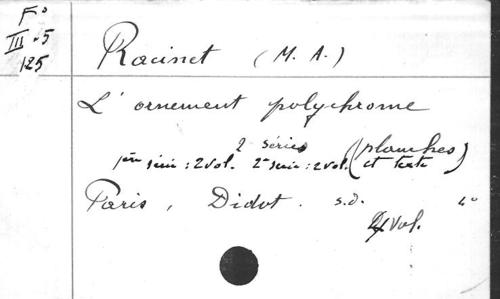 F°
III.5
125
Racinet (M. A.)
L'ornement polychrome
2 séries (planches
1ère série : 2 vol. 2e série : 2 vol. et texte)
Paris, Didot. s.d. 4°
4 vol.